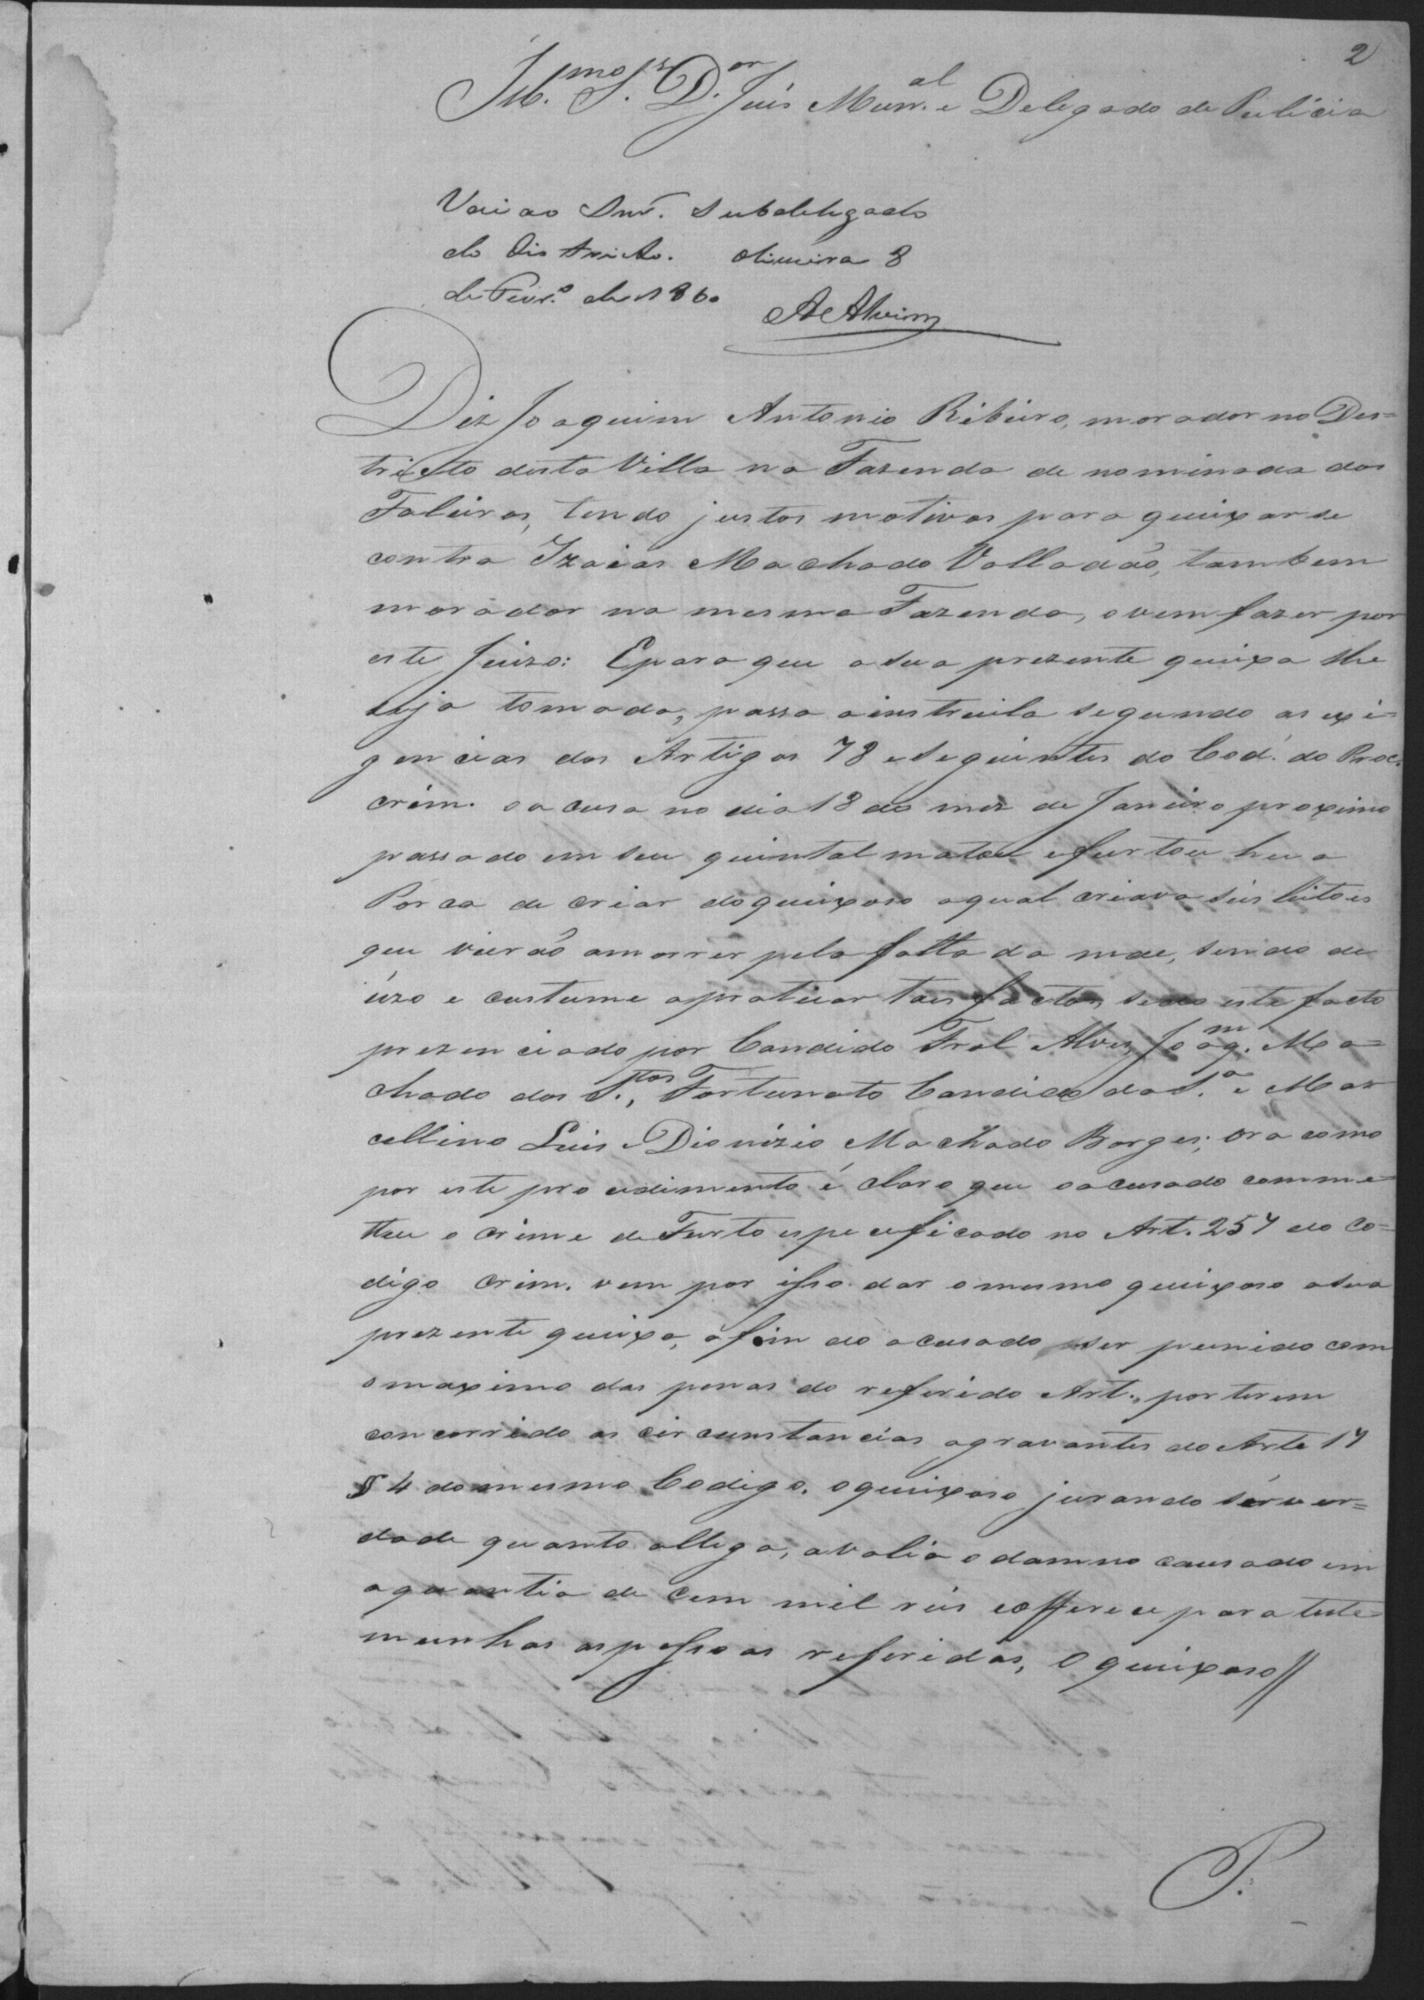 2
Ill.mo Sr. D.or Juis Mun.al e Delegado de Policia
Vai ao Snr. Subdelegado
do Districto. Oliveira 8
de Fevr.o de 1860
A Alvim
Diz Joaquim Antonio Ribeiro, morador no Des=
tricto desta Villa na Fazenda de nominada dos
Faleiros, tendo justos motivos para queixarse
contra Izaias Machado Valladão, tambem
morador na mesma Fazenda, o vem fazer por
este Juizo: E para que a sua prezente queixa lhe
seja tomada, passa a instruila segundo as exi=
gencias dos Artigos 78 e seguintes do Cod. do Proc.
crim. o acusa no dia 18 do mez de Janeiro proximo
passado em seu quintal matou e furtou hua
Porca de criar do queixoso a qual criava seis leitois
que vierão amorrer pela falta da mãe, sendo de
uzo e custume apraticar tais factos sendo este facto
prezenciado por Candido Alves, Joaq.m Ma=
chado dos S.tos, Fortunato Candido da S.a e Mar
cellino Luis e Dionizio Machado Borges; ora como
por este procedimento é claro que o acusado comme=
tteu o crime de Furto especificado no Art. 257 do Co=
digo Crim. vem por isso dar o mesmo queixoso a sua
prezente queixa, a fim do acusado ser punido com
o maximo das penas do referido Art., por terem
concorrido as circunstancias agravantes do Arte 17
§ 4 do mesmo Codigo. O queixoso jurando ser ver=
dade quanto allega, avalia o damno causado em
a quantia de cem mil reis e offerece para teste
munhas as pessoas referidas, O queixoso //
P.